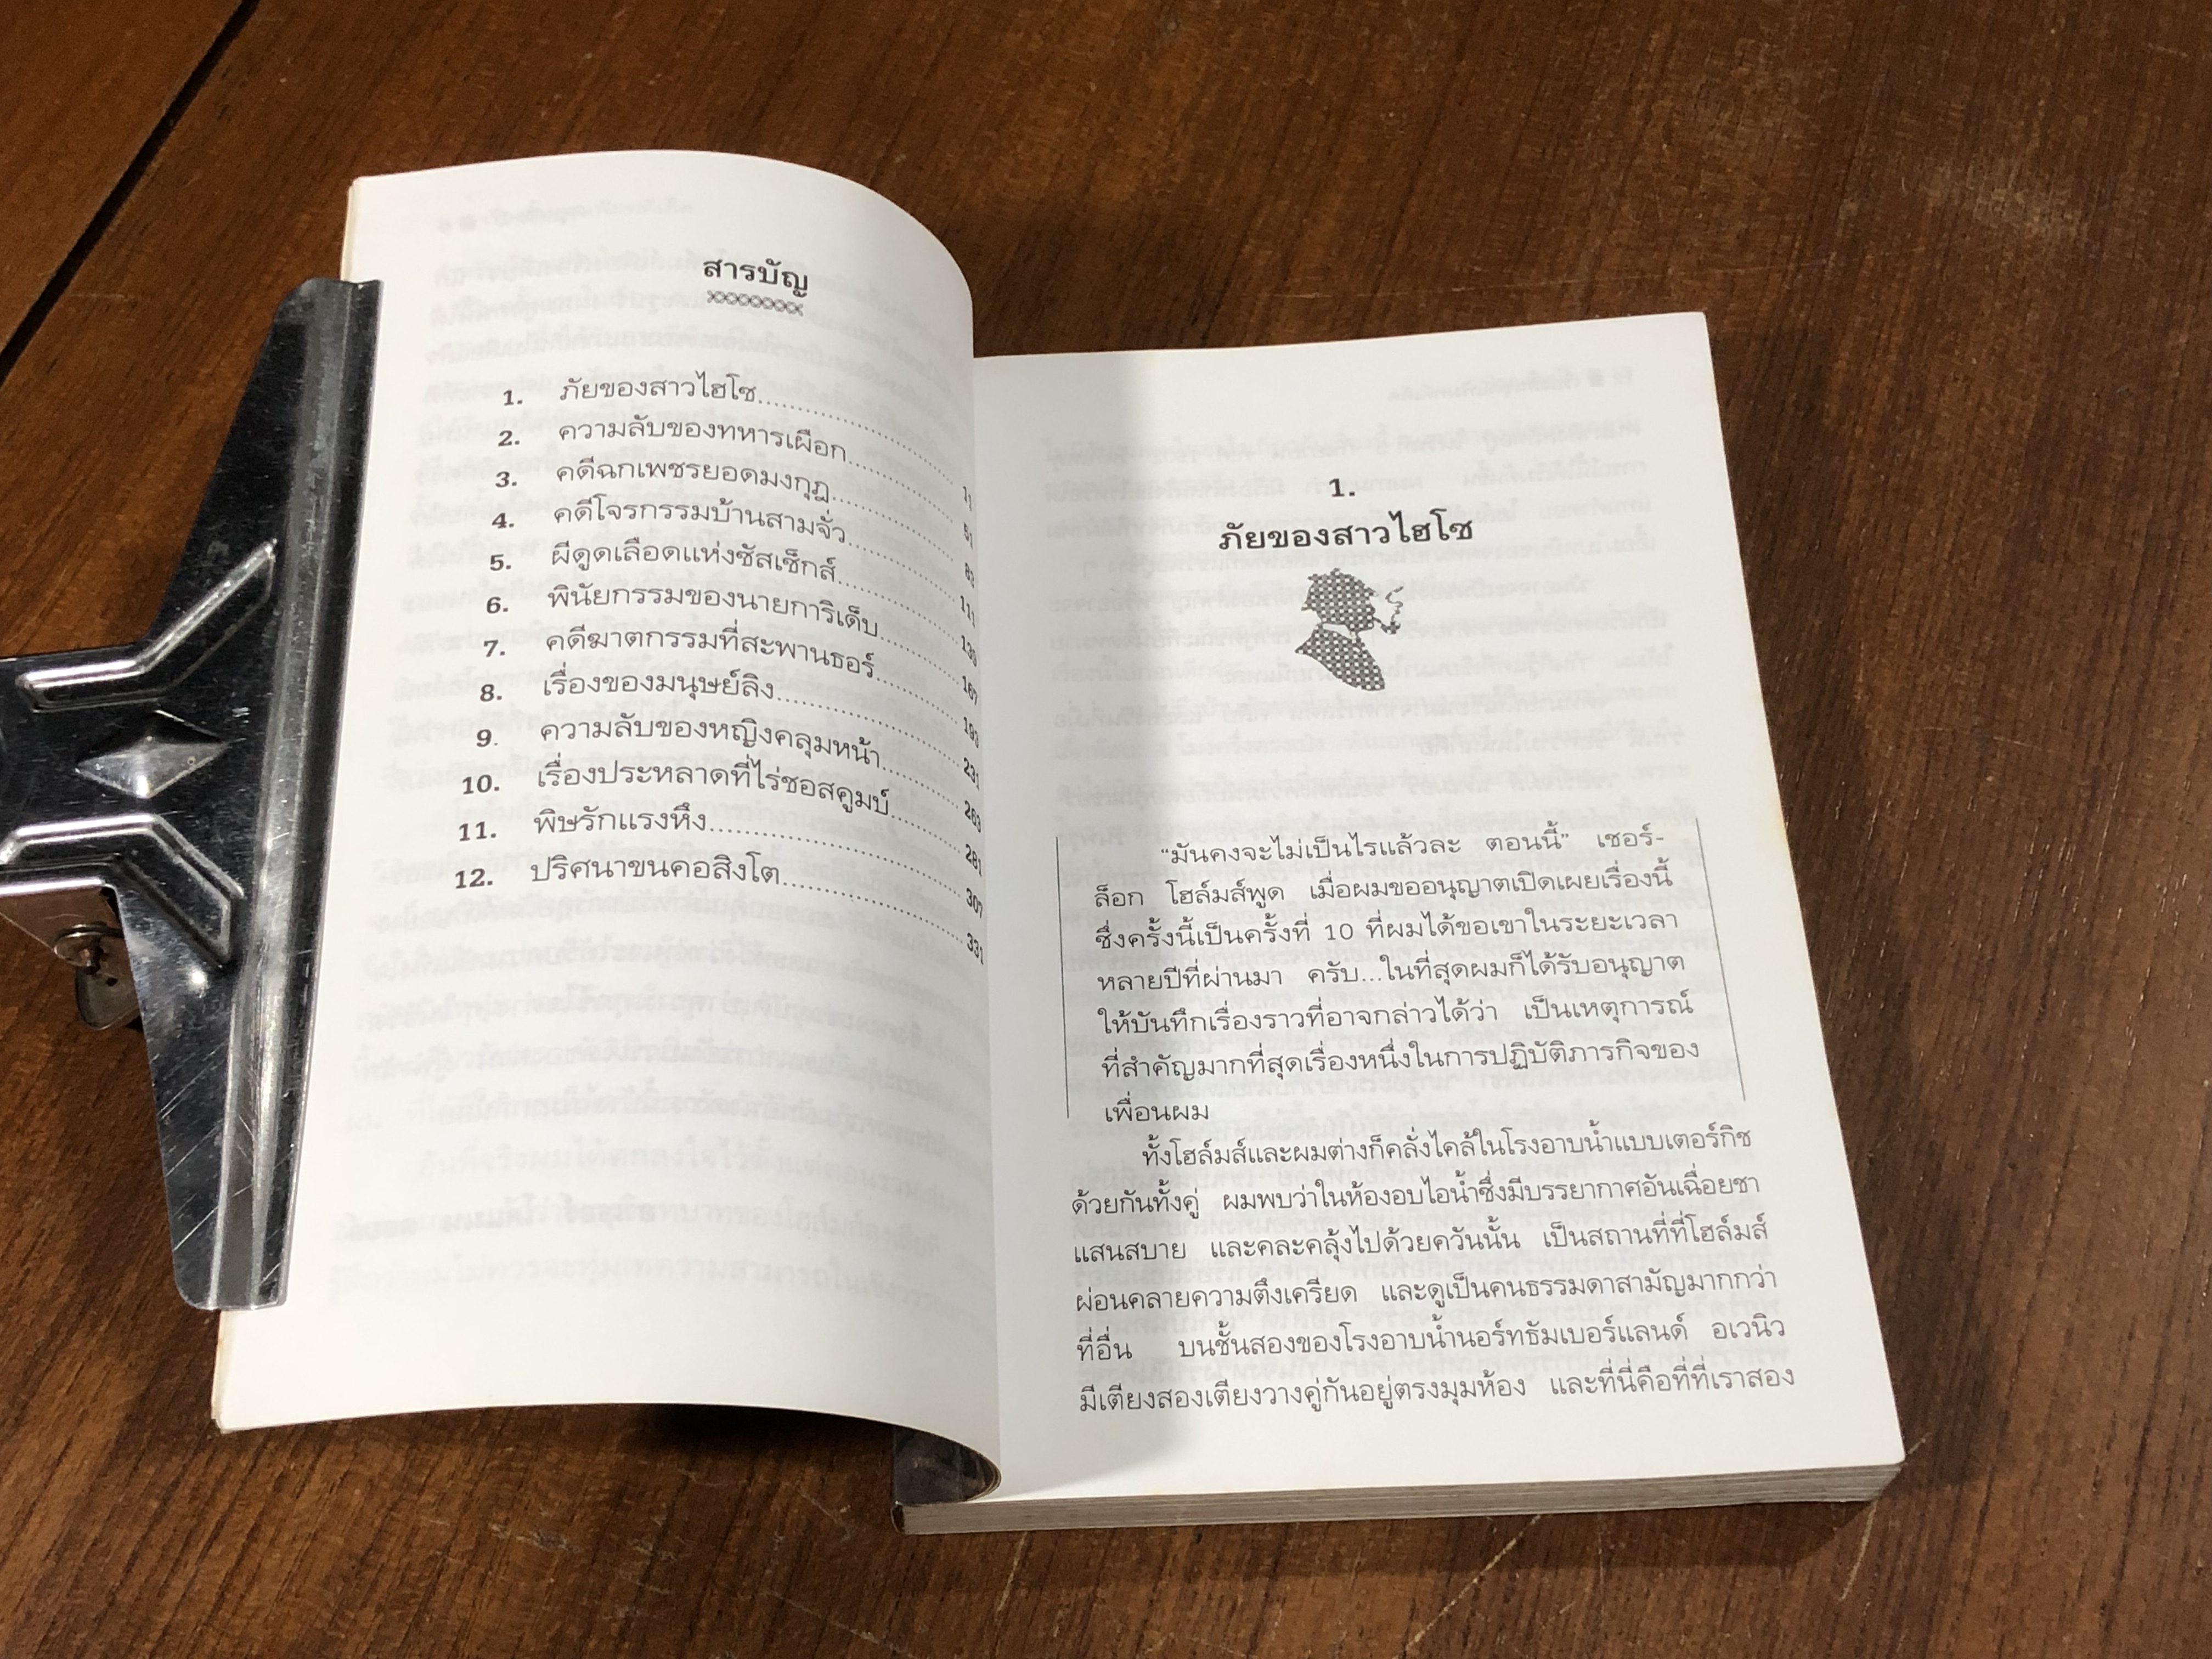 สารบัญ
1. ภัยของสาวไฮโซ 11
2. ความลับของทหารเผือก 51
3. คดีฉกเพชรยอดมงกุฎ 83
4. คดีโจรกรรมบ้านสามจั่ว 111
5. ผีดูดเลือดแห่งซัสเซ็กส์ 139
6. พินัยกรรมของนายการิเด็บ 167
7. คดีฆาตกรรมที่สะพานธอร์ 193
8. เรื่องของมนุษย์ลิง 231
9. ความลับของหญิงคลุมหน้า 263
10. เรื่องประหลาดที่ไร่ชอสคูมบ์ 281
11. พิษรักแรงหึง 307
12. ปริศนาขนคอสิงโต 331
1.
ภัยของสาวไฮโซ
“มันคงจะไม่เป็นไรแล้วละ ตอนนี้” เชอร์-
ล็อก โฮล์มส์พูด เมื่อผมขออนุญาตเปิดเผยเรื่องนี้
ซึ่งครั้งนี้เป็นครั้งที่ 10 ที่ผมได้ขอเขาในระยะเวลา
หลายปีที่ผ่านมา ครับ...ในที่สุดผมก็ได้รับอนุญาต
ให้บันทึกเรื่องราวที่อาจกล่าวได้ว่า เป็นเหตุการณ์
ที่สำคัญมากที่สุดเรื่องหนึ่งในการปฏิบัติภารกิจของ
เพื่อนผม
ทั้งโฮล์มส์และผมต่างก็คลั่งไคล้ในโรงอาบน้ำแบบเตอร์กิช
ด้วยกันทั้งคู่ ผมพบว่าในห้องอบไอน้ำซึ่งมีบรรยากาศอันเฉื่อยชา
แสนสบาย และคละคลุ้งไปด้วยควันนั้น เป็นสถานที่ที่โฮล์มส์
ผ่อนคลายความตึงเครียด และดูเป็นคนธรรมดาสามัญมากกว่า
ที่อื่น บนชั้นสองของโรงอาบน้ำนอร์ทธัมเบอร์แลนด์ อเวนิว
มีเตียงสองเตียงวางคู่กันอยู่ตรงมุมห้อง และที่นี่คือที่ที่เราสอง